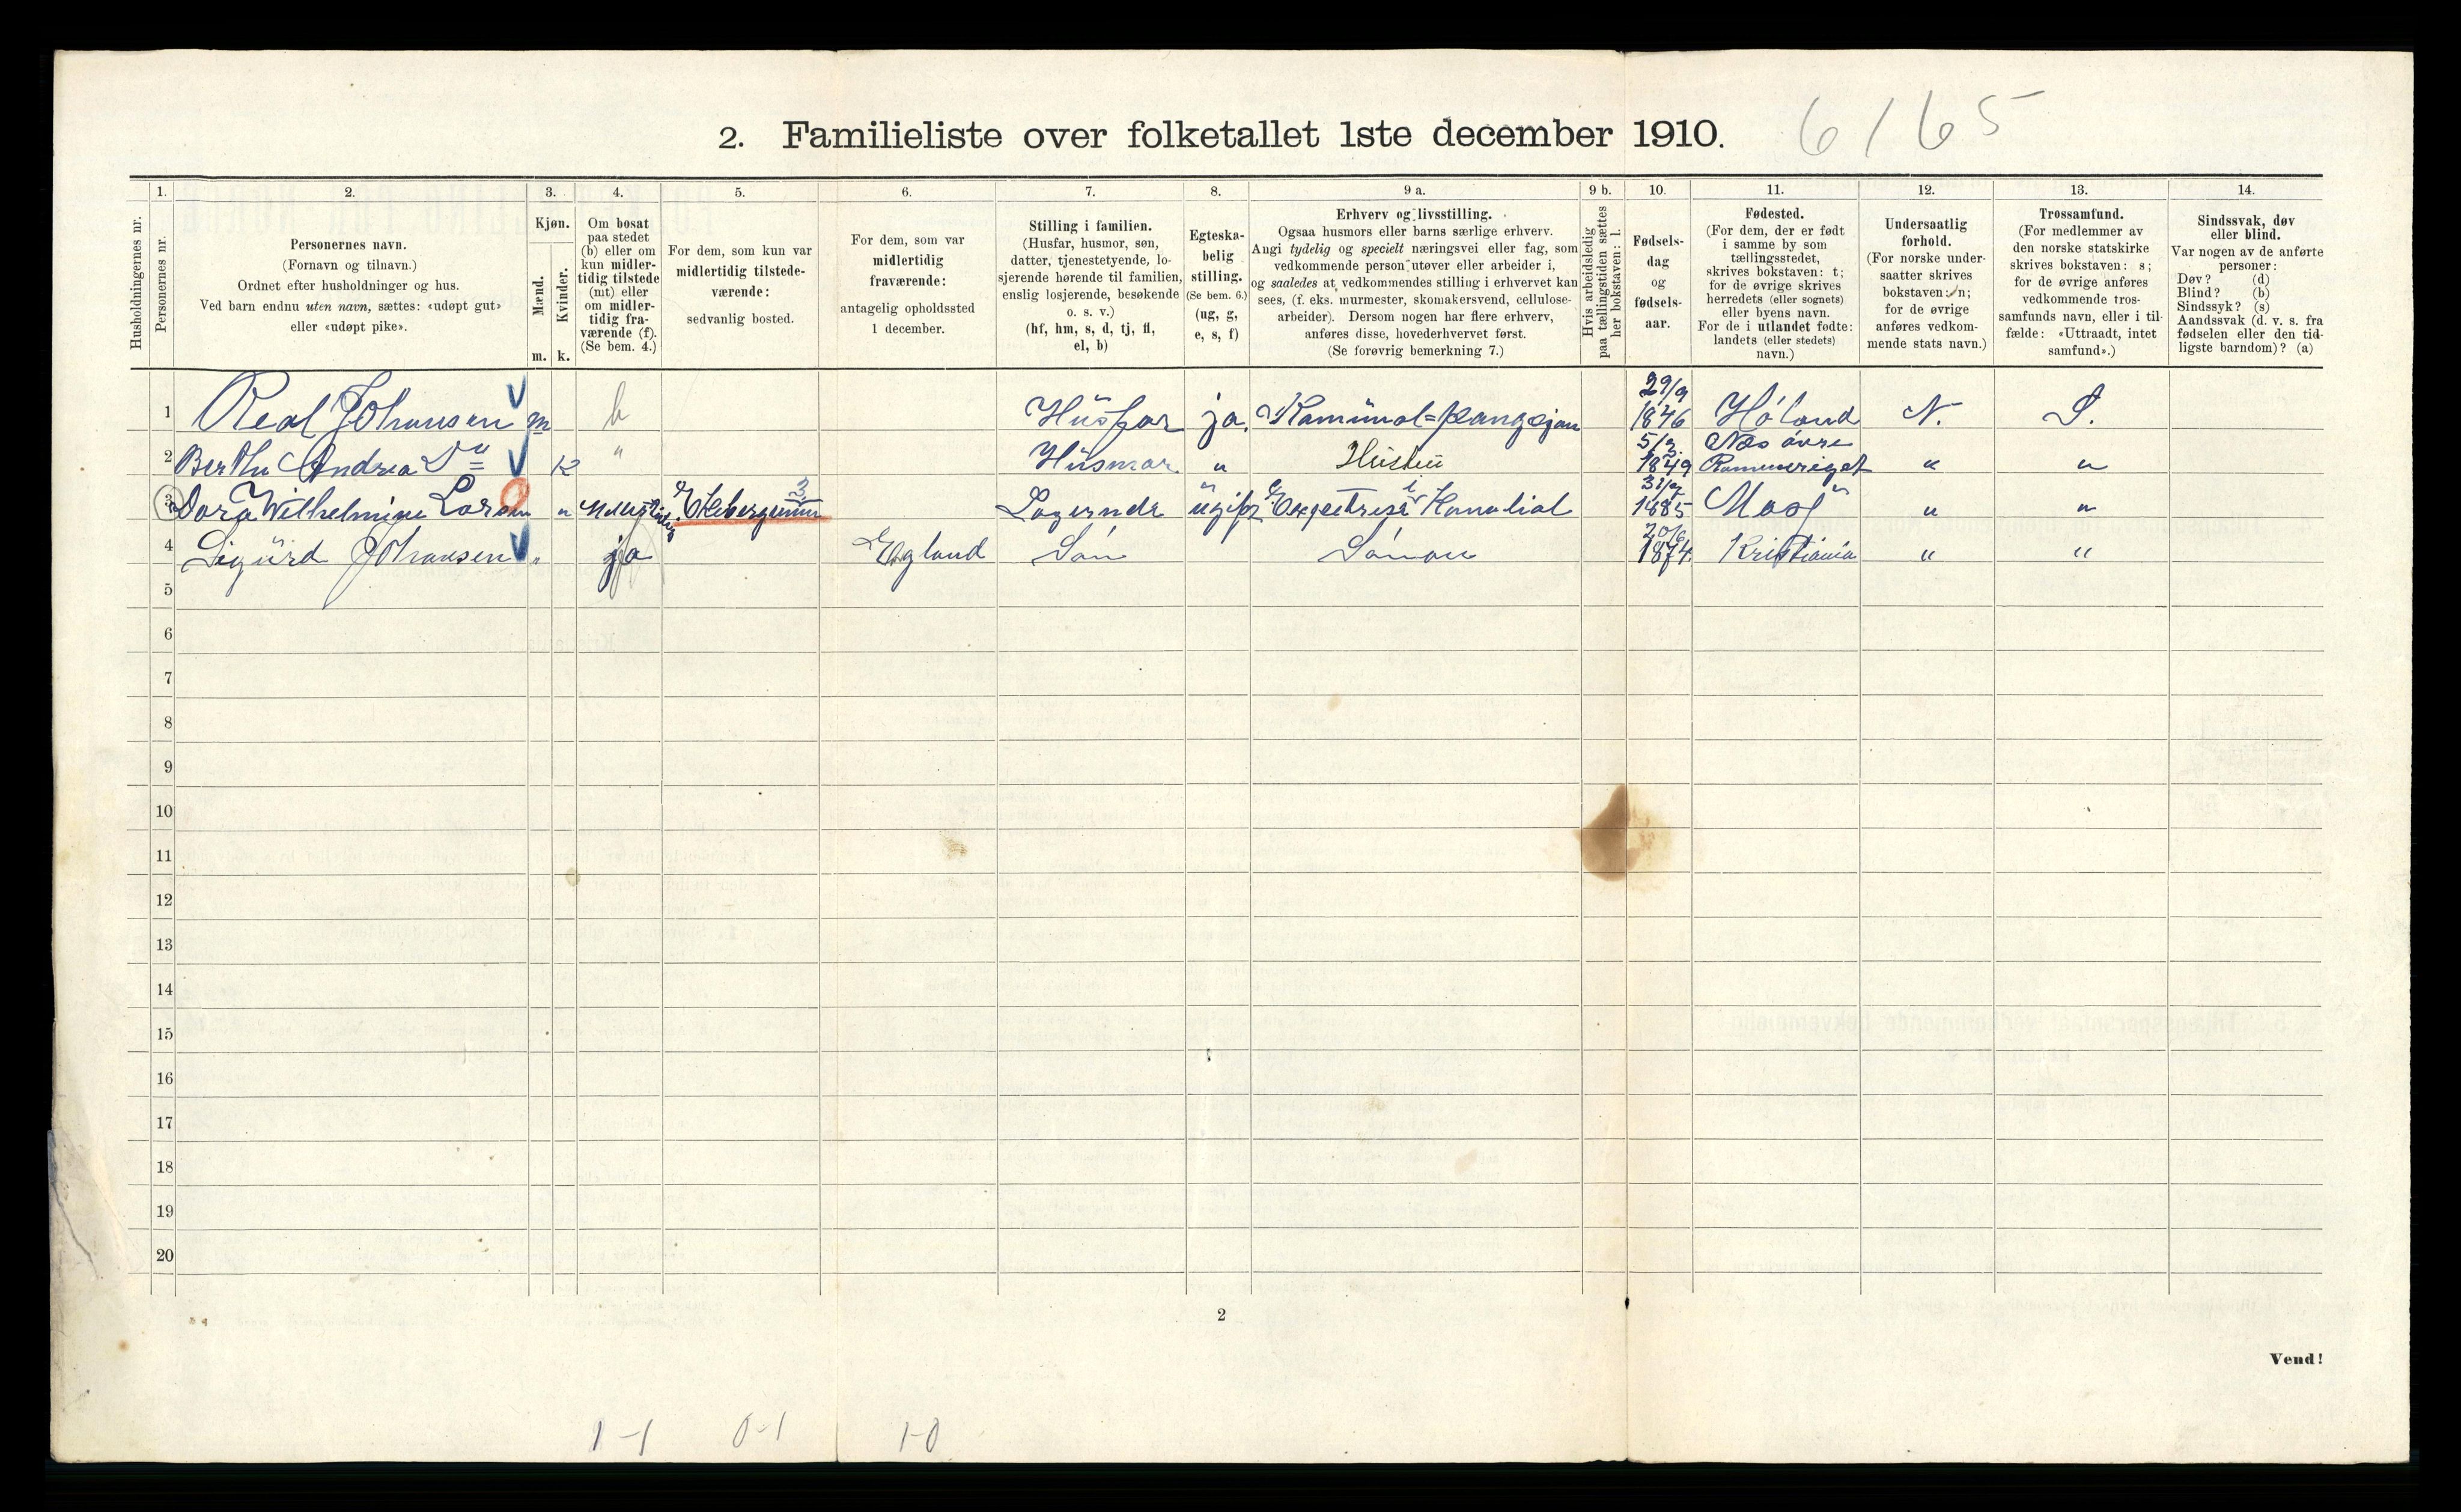 2. Familieliste over folketallet 1ste december 1910. 6165
1. 2. 3. 4. 5. 6. 7. 8. 9 a. 9 b. 10. 11. 12. 13. 14.
Husholdningernes nr.
Personernes nr.
Personernes navn.
(Fornavn og tilnavn.)
Ordnet efter husholdninger og hus.
Ved barn endnu uten navn, sættes: «udøpt gut»
eller «udøpt pike».
Kjøn.
Mænd.
Kvinder.
m. k.
Om bosat
paa stedet
(b) eller om
kun midler-
tidig tilstede
(mt) eller
om midler-
tidig fra-
værende (f).
(Se bem. 4.)
For dem, som kun var
midlertidig tilstede-
værende:
sedvanlig bosted.
For dem, som var
midlertidig
fraværende:
antagelig opholdssted
1 december.
Stilling i familien.
(Husfar, husmor, søn,
datter, tjenestetyende, lo-
sjerende hørende til familien,
enslig losjerende, besøkende
o. s. v.)
(hf, hm, s, d, tj, fl,
el, b)
Egteska-
belig
stilling.
(Se bem. 6.)
(ug, g,
e, s, f)
Erhverv og livsstilling.
Ogsaa husmors eller barns særlige erhverv.
Angi tydelig og specielt næringsvei eller fag, som
vedkommende person utøver eller arbeider i,
og saaledes at vedkommendes stilling i erhvervet kan
sees, (f. eks. murmester, skomakersvend, cellulose-
arbeider). Dersom nogen har flere erhverv,
anføres disse, hovederhvervet først.
(Se forøvrig bemerkning 7.)
Hvis arbeidsledig
paa tællingstiden sættes
her bokstaven: l.
Fødsels-
dag
og
fødsels-
aar.
Fødested.
(For dem, der er født
i samme by som
tællingsstedet,
skrives bokstaven: t;
for de øvrige skrives
herredets (eller sognets)
eller byens navn.
For de i utlandet fødte:
landets (eller stedets)
navn.)
Undersaatlig
forhold.
(For norske under-
saatter skrives
bokstaven: n;
for de øvrige
anføres vedkom-
mende stats navn.)
Trossamfund.
(For medlemmer av
den norske statskirke
skrives bokstaven: s;
for de øvrige anføres
vedkommende tros-
samfunds navn, eller i til-
fælde: «Uttraadt, intet
samfund».)
Sindssvak, døv
eller blind.
Var nogen av de anførte
personer:
Døv? (d)
Blind? (b)
Sindssyk? (s)
Aandssvak (d. v. s. fra
fødselen eller den tid-
ligste barndom)? (a)
1 Real Johansen m b Husfar ja. 29/9 1846 Höland N. S.
2 Bertha Andrea Do K " Husmor " Hustru 5/3. 1849 Næs övre Romeriget " "
3 Dora Wilhelmine Larsen " Logerende ugift 31/7 1885 Moss " "
4 Sigurd Johansen " ja England Sön Sömon 20/6 1874. Kristiania " "
5
6
7
8
9
10
11
12
13
14
15
16
17
18
19
20
2
Vend!
1-1 0-1 1-0